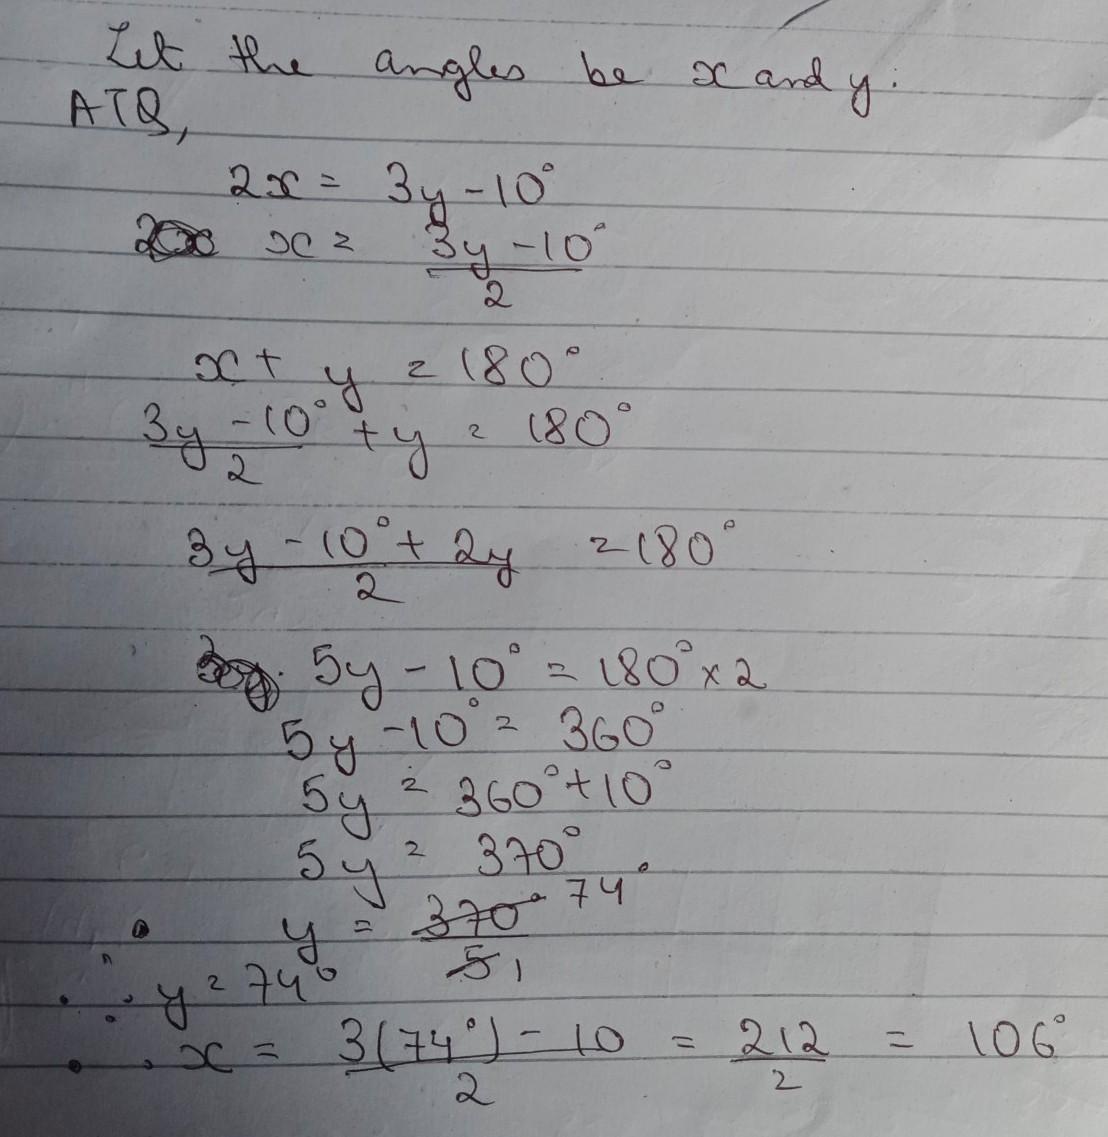 Let the angles be x and y.
ATQ,
2x = 3y - 10°
x = 3y - 10° / 2
x + y = 180°
3y - 10° / 2 + y = 180°
3y - 10° + 2y / 2 = 180°
5y - 10° = 180° × 2
5y - 10° = 360°
5y = 360° + 10°
5y = 370°
y = 370° / 5 74° 1
∴ y = 74°
∴ x = 3(74°) - 10 / 2 = 212 / 2 = 106°